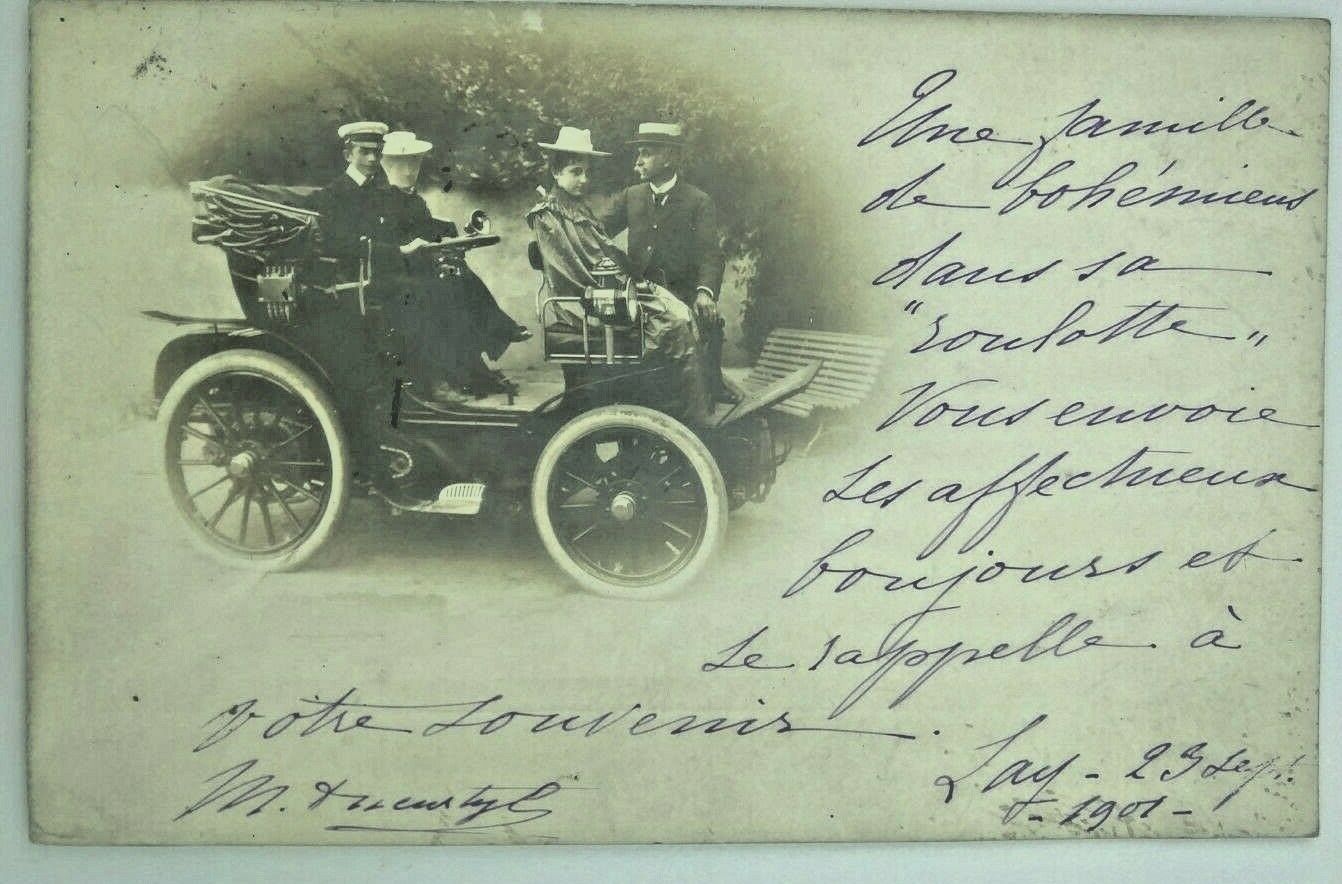 Une famille
de bohémiens
dans sa
"roulotte"
Vous envoie
ses affectueux
bonjours et
se rappelle à
votre souvenir.
Lay - 23 sept.
- 1901 -
M.